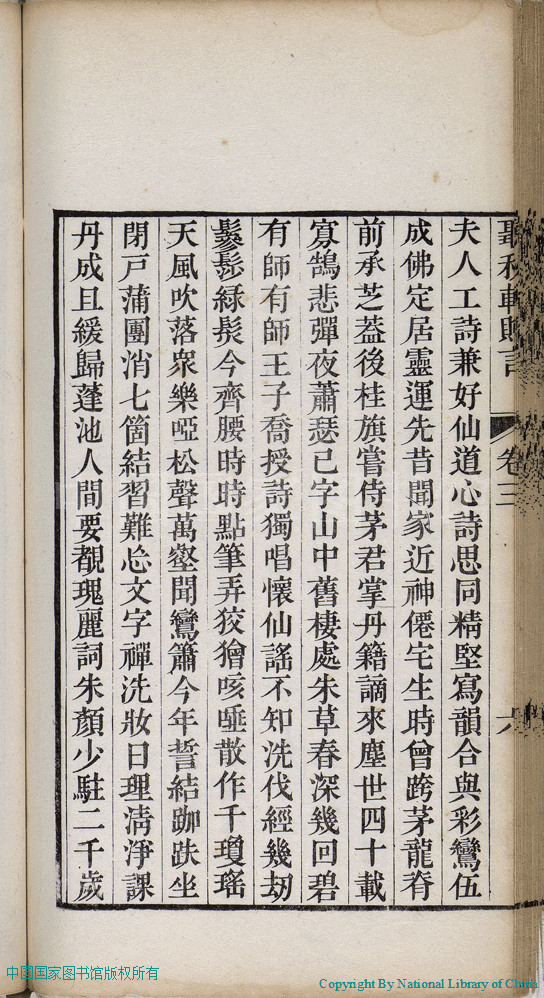 聽秋軒贈言 卷三 六
夫人工詩兼好仙道心詩思同精堅寫韻合與彩鸞伍
成佛定居靈運先昔聞家近神僊宅生時曾跨茅龍脊
前承芝蓋後桂旗嘗侍茅君掌丹籍謫來塵世四十載
寡鵠悲彈夜蕭瑟己字山中舊棲處朱草春深幾回碧
有師有師王子喬授詩獨唱懷仙謠不知洗伐經幾劫
鬖髿緑髮今齊腰時時點筆弄狡獪咳唾散作千瓊瑤
天風吹落衆樂啞松聲萬壑聞鸞簫今年誓結跏趺坐
閉戸蒲團消七箇結習難忘文字禪洗妝日理淸淨課
丹成且緩歸蓬池人間要覩瑰麗詞朱顏少駐二千歲
中国国家图书馆版权所有
Copyright By National Library of China